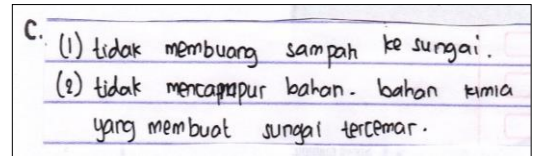 C.
(1) tidak membuang sampah ke sungai.
(2) tidak mencapapur bahan. bahan kimia
yang membuat sungai tercemar.